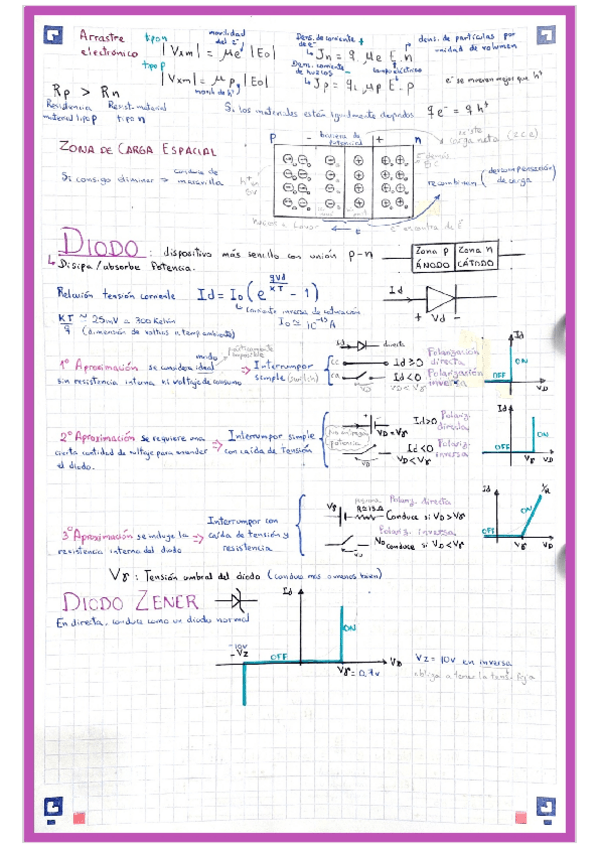 Arrastre electrónico
tipo n |Vxm| = μe |Eo|
movilidad del e⁻
tipo p |Vxm| = μp |Eo|
movil. de h⁺
Dens. de corriente de e⁻
Jn = q. μe E. n
dens. de partículas por unidad de volumen
Dens. corriente de huecos
Jp = q. μp E. p
campo eléctrico
e⁻ se mueven mejor que h⁺
Rp > Rn
Resistencia material tipo p
Resist. material tipo n
Si los materiales están igualmente dopados q e⁻ = q h⁺
ZONA DE CARGA ESPACIAL
Si consigo eliminar → conduce de maravilla
P - barrera de potencial + n
existe carga neta (zce)
recombinen (descompensación de carga)
DIODO: dispositivo más sencillo con unión p-n
↳ Disipa/absorbe Potencia.
Zona p ÁNODO
Zona n CÁTODO
Relación tensión corriente Id = Io (e^(qVd/KT) - 1)
↳ Corriente inversa de saturación
Id
+ Vd -
KT/q ≈ 25mV = 300 Kelvin
(dimensión de voltios a temp ambiente)
1º Aproximación se considera ideal
sin resistencia interna, ni voltaje de consumo
⇒ Interrumpor simple (switch)
Id directa
Id ≥ 0 Polarización directa
Id < 0 Polarización inversa
Id
ON
OFF
VD
2º Aproximación se requiere una
cierta cantidad de voltaje para encender
el diodo.
⇒ Interrumpor simple con caída de tensión
VD = Vγ
Id>0 Polariz. directa
Id<0 Polariz. inversa
VD < Vγ
Id
OFF
ON
Vγ VD
3º Aproximación se incluye la
resistencia interna del diodo
⇒ Interrumpor con caída de tensión y resistencia
Vγ
Polariz. directa
Conduce si VD > Vγ
Polariz. inversa
No conduce si VD < Vγ
Id
1/R
ON
OFF
Vγ VD
Vγ : Tensión umbral del diodo (conduce más o menos bien)
DIODO ZENER
En directa, conduce como un diodo normal
Id
-10V
-Vz
OFF
ON
VD
Vγ = 0,7v
Vz = 10v en inversa
obliga a tener la tens. fija